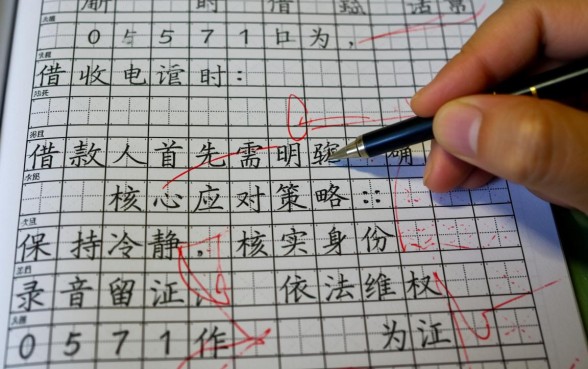 时 借 活 常
05571口为,
借收电 时:
借款人首先需明 确
核心应对策略::
保持冷静. 核实身份
录音留证 依法维权
0571作 为证